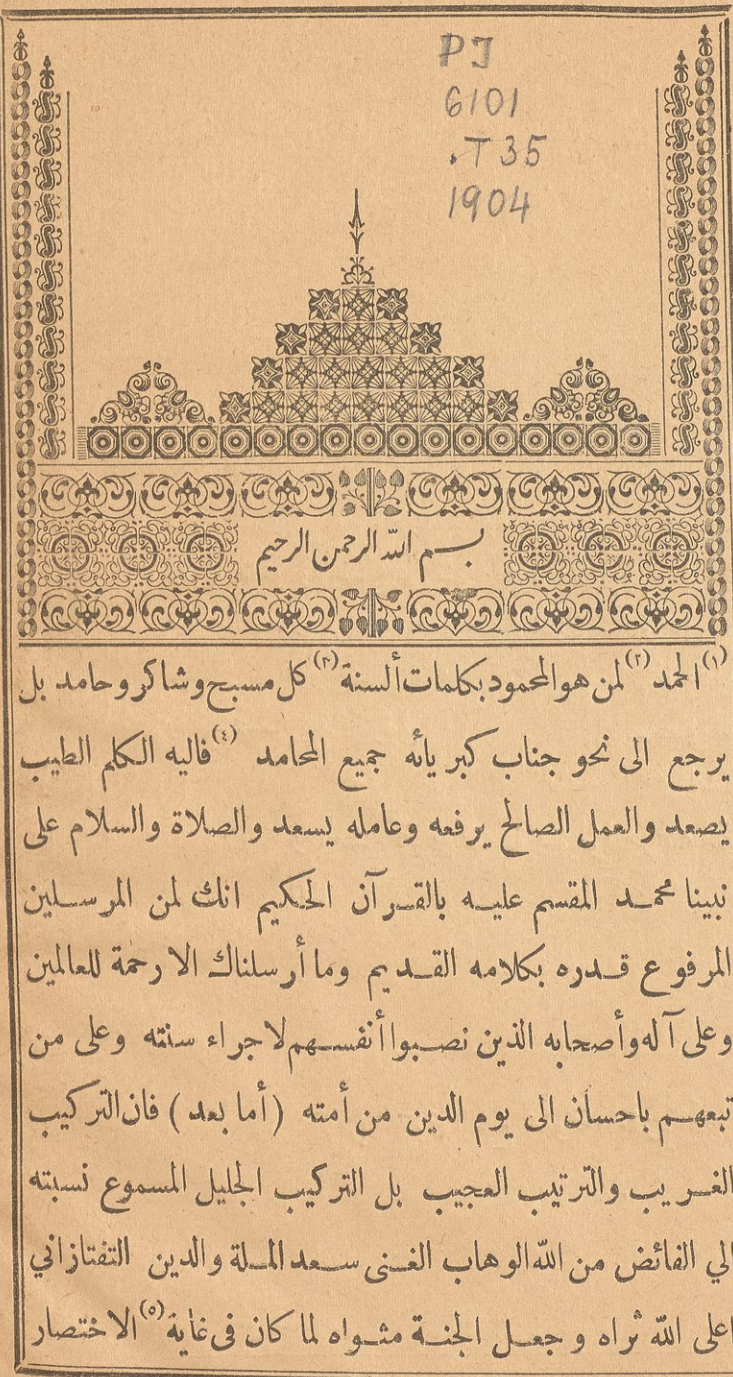 PJ
6101
.T35
1904
بسم الله الرحمن الرحيم
(١) الحمد (٢) لمن هو المحمود بكلمات ألسنة (٣) كل مسبح وشاكر وحامد بل
يرجع الى نحو جناب كبريائه جميع المحامد (٤) فاليه الكلم الطيب
يصعد والعمل الصالح يرفعه وعامله يسعد والصلاة والسلام على
نبينا محمد المقسم عليه بالقرآن الحكيم انك لمن المرسلين
المرفوع قدره بكلامه القديم وما أرسلناك الا رحمة للعالمين
وعلى آله وأصحابه الذين نصبوا أنفسهم لاجراء سنته وعلى من
تبعهم باحسان الى يوم الدين من أمته (أما بعد) فان التركيب
الغريب والترتيب العجيب بل التركيب الجليل المسموع نسبته
الي الفائض من الله الوهاب الغنى سعد الملة والدين التفتازاني
اعلى الله ثراه وجعل الجنة مثواه لما كان فى غاية (٥) الاختصار